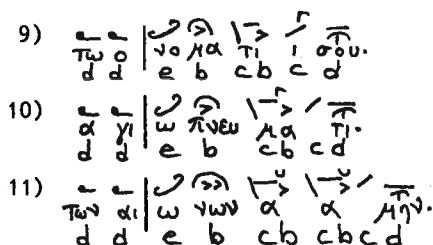 9)
τω ο νο μα τι ι σου.
d d e b cb c d
10)
α γι ω πνευ μα τι.
d d e b cb c d
11)
των αι ω νων α α μην.
d d e b cb cb c d